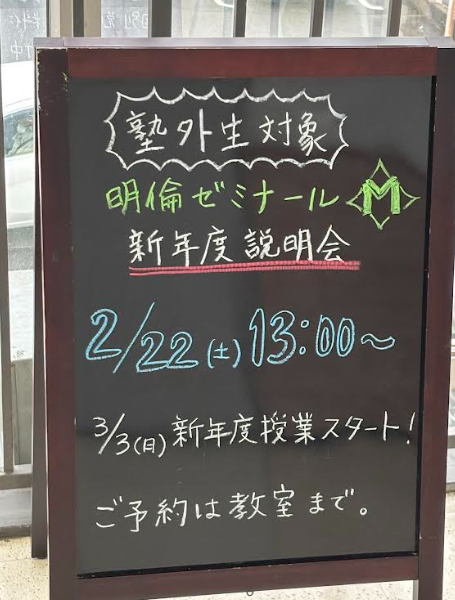 塾外生対象
明倫ゼミナール M
新年度説明会
2/22(土)13:00~
3/3(月)新年度授業スタート!
ご予約は教室まで。